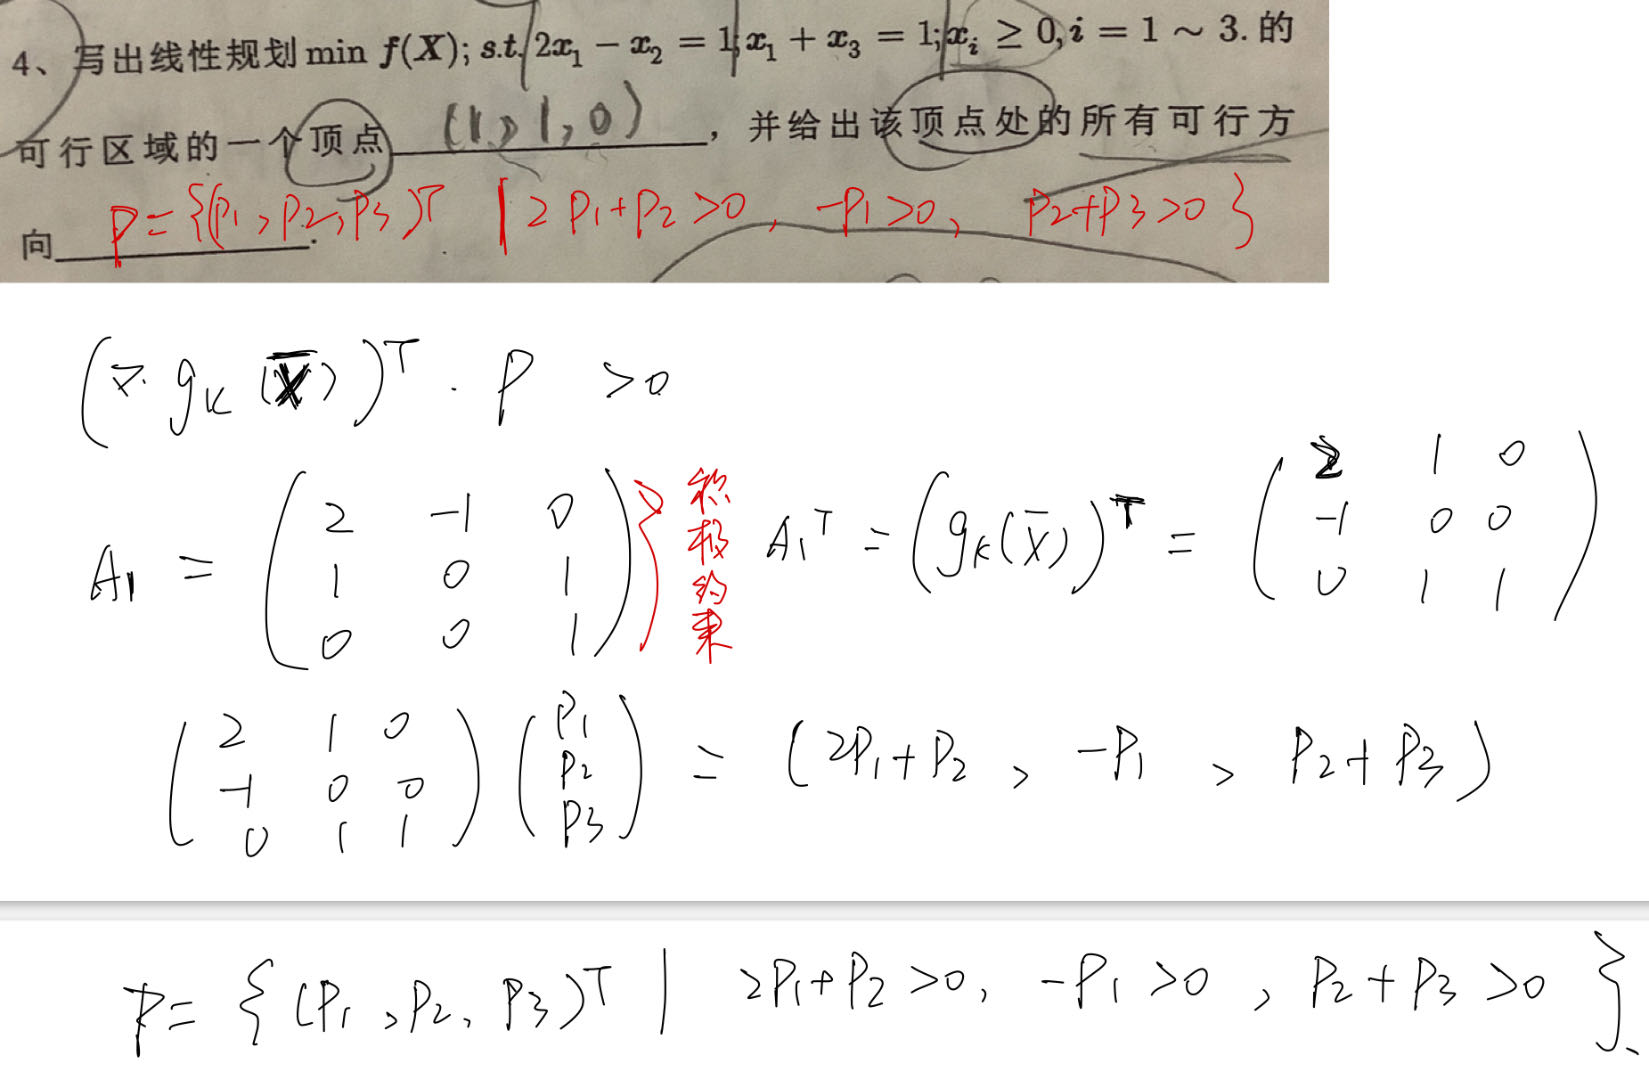 4、写出线性规划 min f(X); s.t. 2x₁ − x₂ = 1; x₁ + x₃ = 1; xᵢ ≥ 0, i = 1 ~ 3. 的
可行区域的一个顶点 (1, 1, 0) ，并给出该顶点处的所有可行方
向 P={(P₁,P₂,P₃)ᵀ | 2P₁+P₂>0, -P₁>0, P₂+P₃>0} .
(∇ g_K(X̄))ᵀ · P >0
A₁ = (2 -1 0
1 0 1
0 0 1) } 积极约束 A₁ᵀ = (g_K(X̄))ᵀ = (2 1 0
-1 0 0
0 1 1)
(2 1 0
-1 0 0
0 1 1) (P₁
P₂
P₃) = (2P₁+P₂, -P₁, P₂+P₃)
P= {(P₁,P₂,P₃)ᵀ | 2P₁+P₂>0, -P₁>0, P₂+P₃>0}.